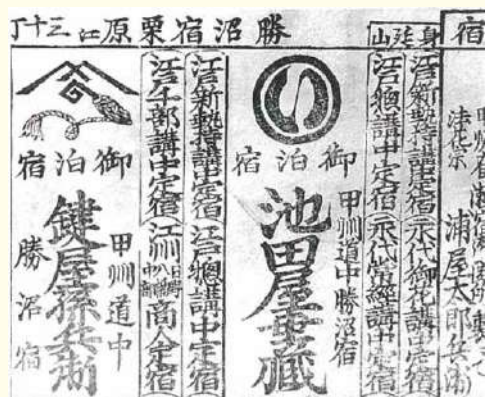 宿
身延山
勝沼宿栗原江三十丁
江戸新執持講中定宿
永代御花講中定宿
江戸惣講中定宿
永代常経講中定宿
御泊宿
甲州道中勝沼宿
池田屋
江戸新執持講中定宿
江戸惣講中定宿
江戸千部講中定宿
江州
商人定宿
御泊宿
甲州道中
鍵屋孫兵衛
勝沼宿
浦屋太郎兵衛